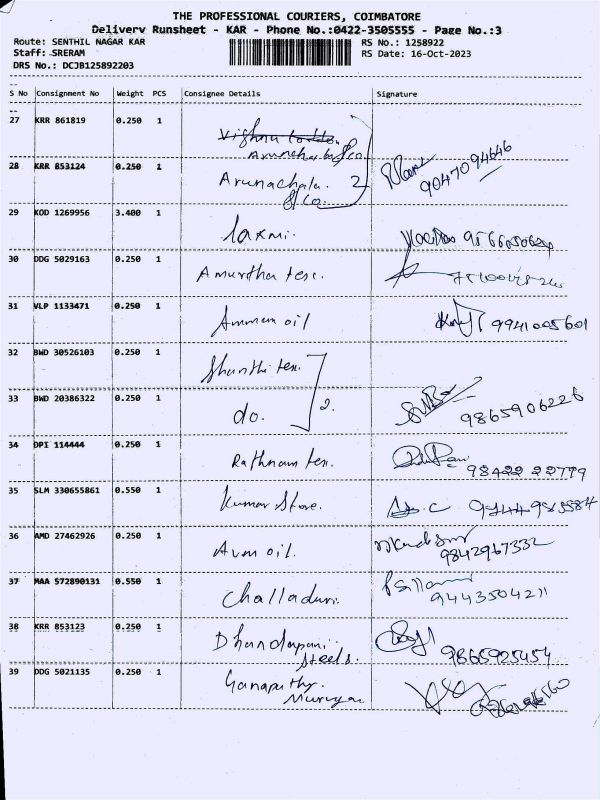 THE PROFESSIONAL COURIERS, COIMBATORE
Delivery Runsheet - KAR - Phone No.:0422-3505555 - Page No.:3
Route: SENTHIL NAGAR KAR RS No.: 1258922
Staff: SRERAM RS Date: 16-Oct-2023
DRS No.: DCJB125892203
S No Consignment No Weight PCS Consignee Details Signature
27 KRR 861819 0.250 1
Arunchala & Co.
28 KRR 853124 0.250 1 Arunachala. 2 9047094646
& Co.
29 KOD 1269956 3.400 1 laxmi.
30 DDG 5029163 0.250 1 Amurtha tex.
31 VLP 1133471 0.250 1 Amman oil 9941005601
32 BWD 30526103 0.250 1 Shanthi tex.
33 BWD 20386322 0.250 1 do. 2. 9865906226
34 DPI 114444 0.250 1 Rathnam tex. 98422 22779
35 SLM 330655861 0.550 1 Kumar Store.
36 AMD 27462926 0.250 1 Avm oil. 9842967332
37 MAA 572890131 0.550 1 Challaduri. 9443504211
38 KRR 853123 0.250 1 Dhandapani
Steels. 9865925454
39 DDG 5021135 0.250 1 Ganapathy.
Murugan